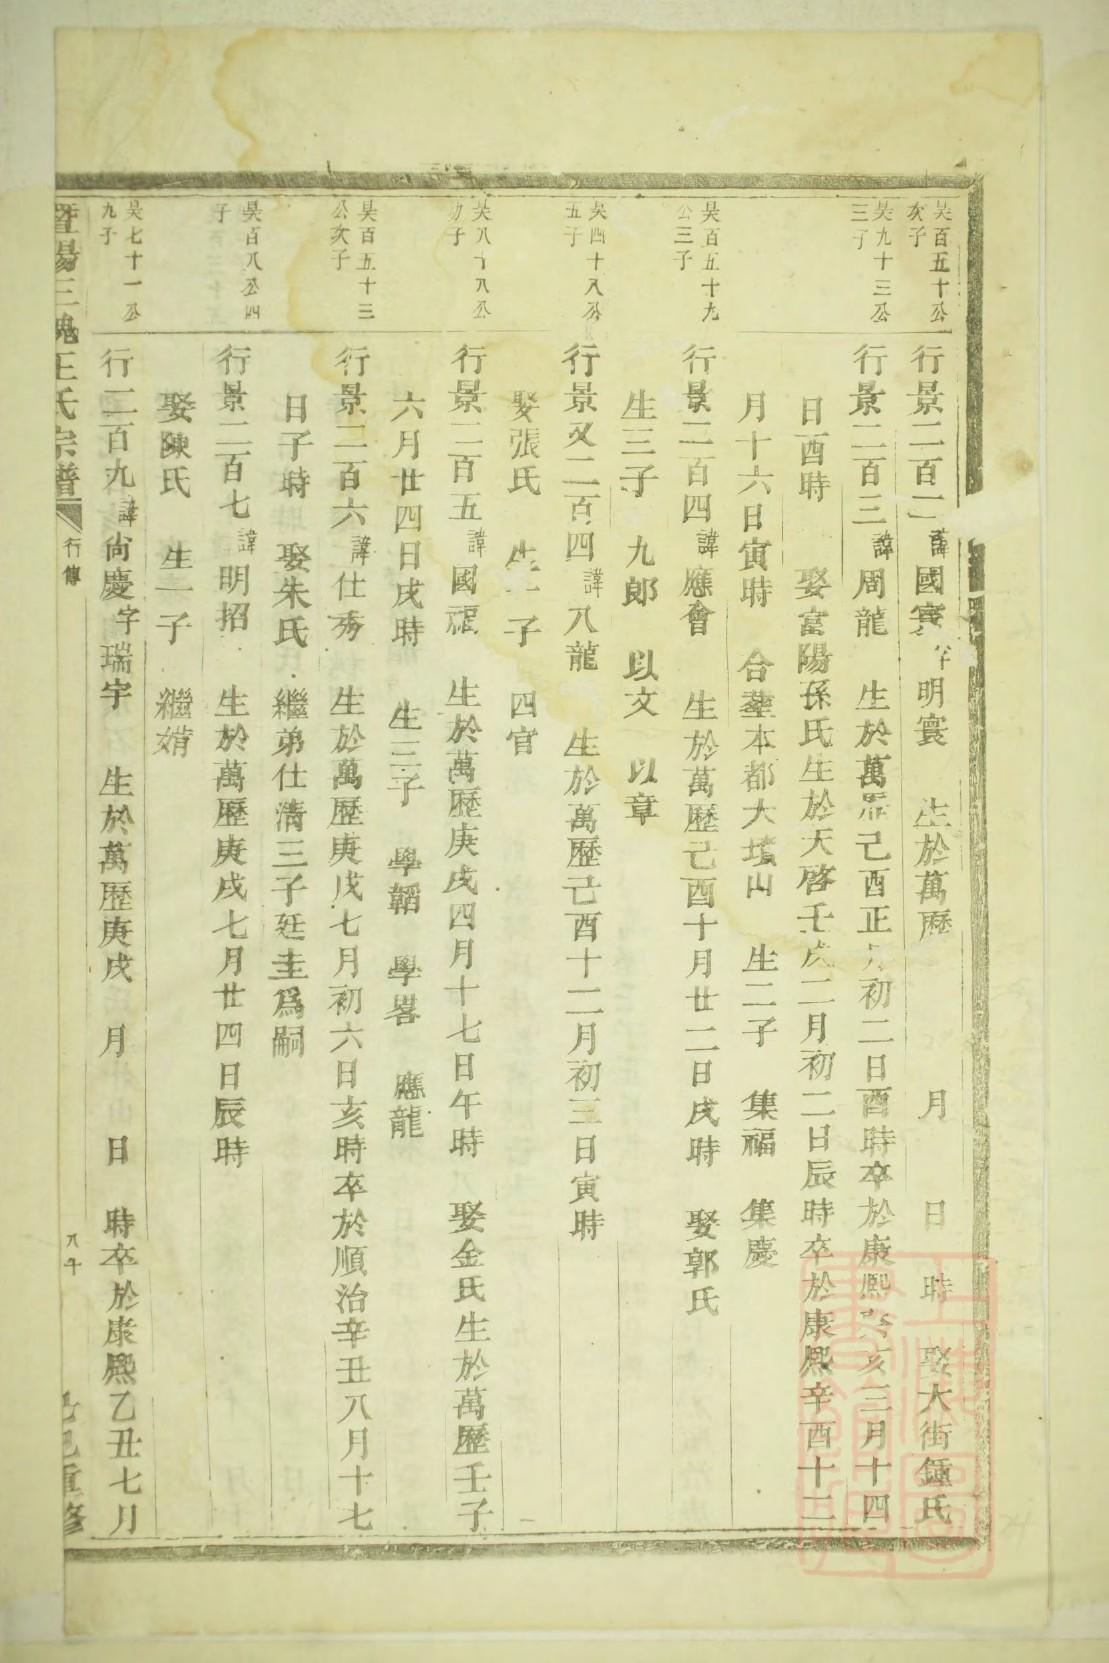 吴百五十公次子
行景二百二諱國賓字明寰 生於萬歷 月 日 時 娶大街鍾氏
吴九十三公三子
行景二百三諱周龍 生於萬歷己酉正月初二日酉時卒於康熙癸亥三月十四
日酉時 娶富陽孫氏生於天啓壬戌二月初二日辰時卒於康熙辛酉十二
月十六日寅時 合塟本都大墳山 生二子 集福 集慶
吴百五十九公三子
行景二百四諱應會 生於萬歷己酉十月廿二日戌時 娶郭氏
生三子 九郎 以文 以章
吴四十八公五子
行景又二百四諱八龍 生於萬歷己酉十二月初三日寅時
娶張氏 生一子 四官
吴八十八公幼子
行景二百五諱國 生於萬歷庚戌四月十七日午時 娶金氏生於萬歷壬子
六月廿四日戌時 生三子 學韜 學畧 應龍
吴百五十三公次子
行景二百六諱仕秀 生於萬歷庚戌七月初六日亥時卒於順治辛丑八月十七
日子時 娶朱氏 繼弟仕淸三子廷圭爲嗣
吴百八公四子
行景二百七諱明招 生於萬歷庚戌七月廿四日辰時
娶陳氏 生一子 繼
吴七十一公九子
行二百九諱尙慶字瑞宇 生於萬歷庚戌 月 日 時卒於康熙乙丑七月
暨陽三槐王氏宗譜 行傳 八十 己巳重修